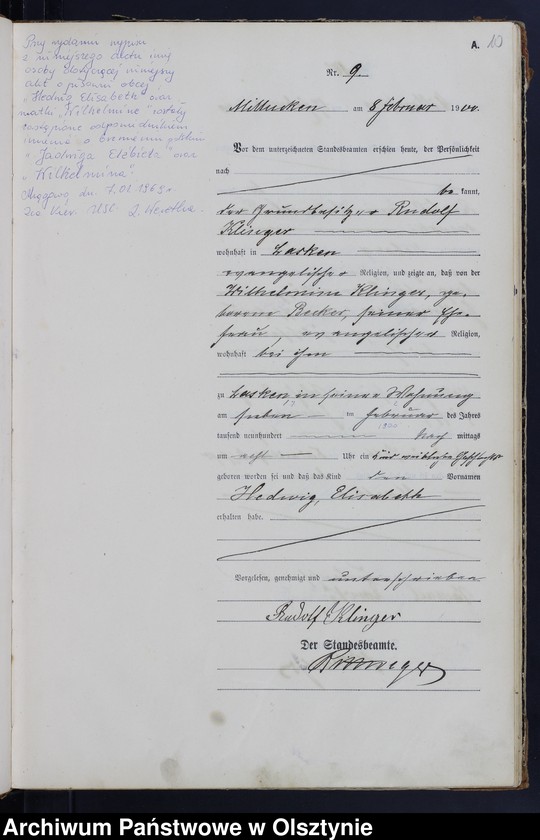 Przy wydaniu wypisu
z niniejszego aktu imię
osoby dotyczącej niniejszy
akt o pisowni obcej
"Hedwig Elisabeth" oraz
matki "Wilhelmine" zostały
zastąpione odpowiednikiem
imienia o brzmieniu polskim
"Jadwiga Elżbieta" oraz
"Wilhelmina"
dn. 7.01.1969 r.
Kier. USC
A. 10
Nr. 9.
am 8 Februar 1900.
Vor dem unterzeichneten Standesbeamten erschien heute, der Persönlichkeit
nach
be kannt,
der Grundbesitzer Rudolf
Klinger
wohnhaft in Lasken
evangelischer Religion, und zeigte an, daß von der
Wilhelmine Klinger, ge-
borene Recker, seiner Ehe-
frau, evangelischer Religion,
wohnhaft bei ihm
zu Lasken, in seiner Wohnung
am sieben im Februar des Jahres
tausend neunhundert 1900 Nach mittags
um acht Uhr ein Kind weiblichen Geschlechts
geboren worden sei und daß das Kind den Vornamen
Hedwig, Elisabeth
erhalten habe.
Vorgelesen, genehmigt und unterschrieben
Rudolf Klinger
Der Standesbeamte.
Archiwum Państwowe w Olsztynie